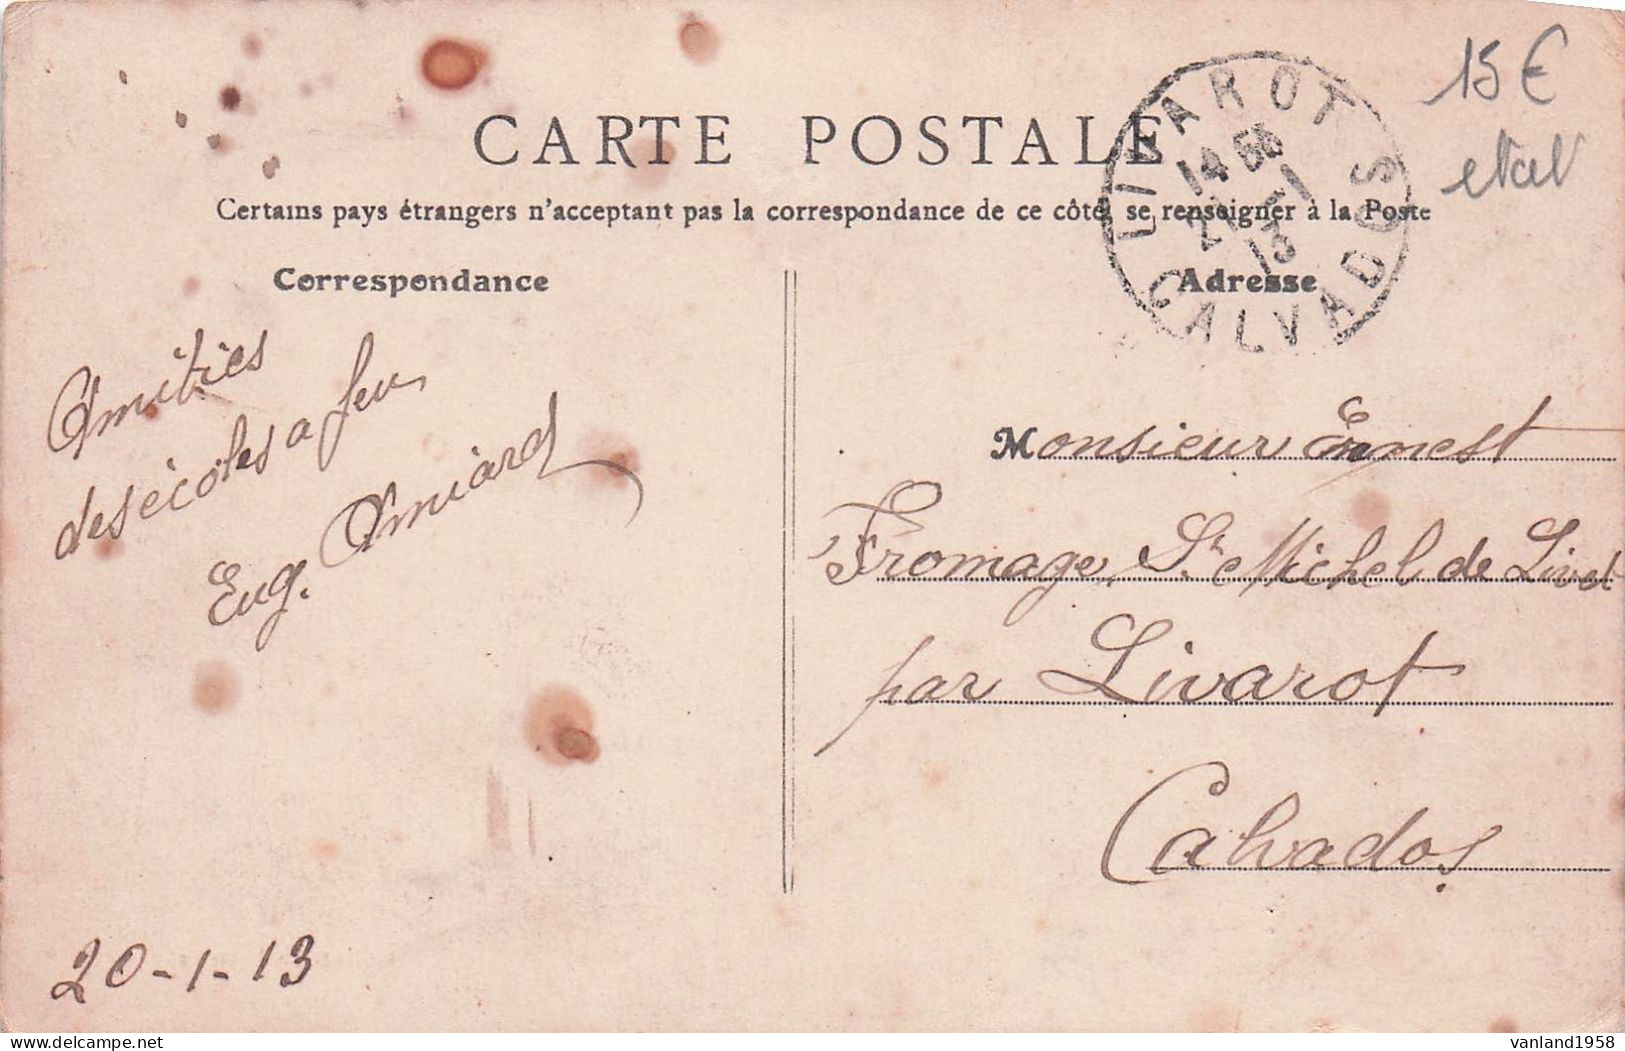 15€
etat
CARTE POSTALE
Certains pays étrangers n'acceptant pas la correspondance de ce côté, se renseigner à la Poste
LIVAROT
14 55
21 1
13
CALVADOS
Correspondance
Adresse
Amitiés
des écoles a feu
Eug. Amiard
20-1-13
Monsieur Ernest
Fromage St Michel de Livet
par Livarot
Calvados
vanland1958